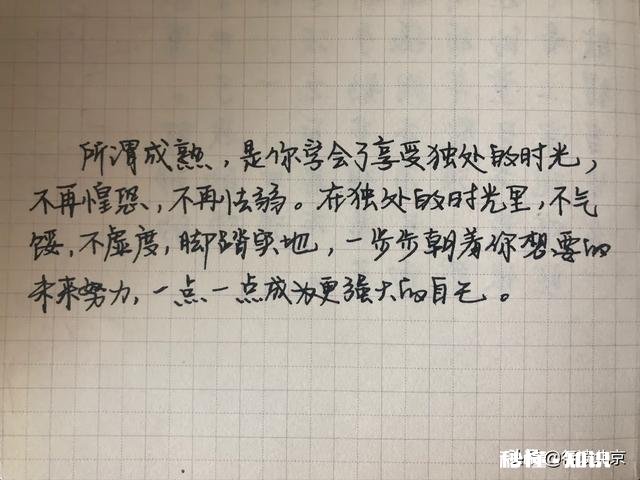 所谓成熟，是你学会了享受独处的时光，
不再惶恐，不再怯弱。在独处的时光里，不气
馁，不虚度，脚踏实地，一步步朝着你想要的
未来努力，一点一点成为更强大的自己。
秒懂·知识